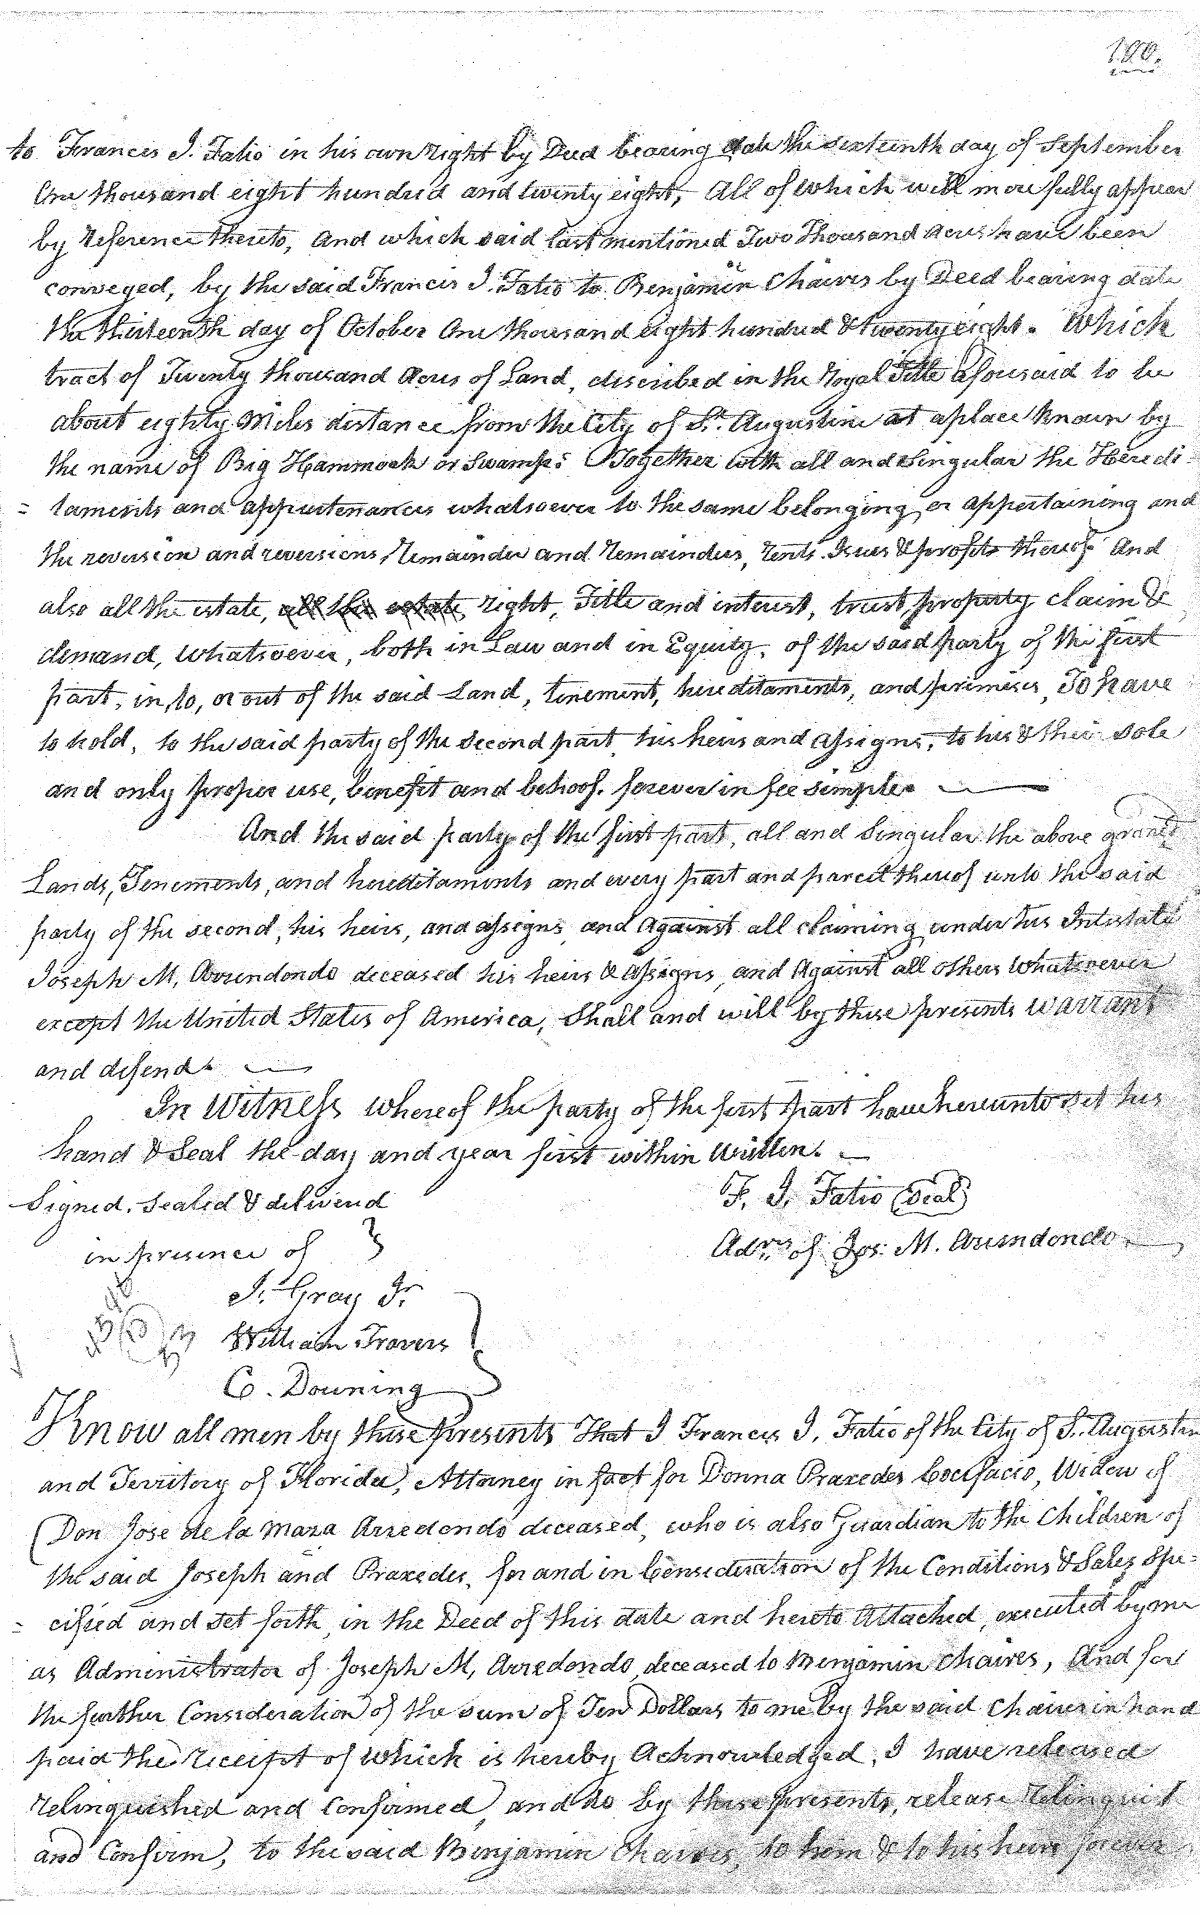 190.
to Francis J. Fatio in his own right by Deed bearing date the sixteenth day of September
One thousand eight hundred and twenty eight, All of which will more fully appear
by reference thereto, and which said last mentioned Two Thousand acres have been
conveyed, by the said Francis J. Fatio to Benjamin Chaires by Deed bearing date
the thirteenth day of October One thousand eight hundred & twenty eight. Which
tract of Twenty thousand Acres of Land, discribed in the Royal Title aforesaid to be
about eighty Miles distance from the City of St. Augustine at a place known by
the name of Big Hammock or Swamp: Together with all and Singular the Heredi-
= taments and appurtenances whatsoever to the same belonging or appertaining and
the reversion and reversions, Remainder and Remainders, rents Issues & profits thereof And
also all the estate, all the estate, right, Title and interest, trust, property claim &
demand, whatsoever, both in Law and in Equity, of the said party of the first
part, in, to, or out of the said Land, tenement, hereditaments, and primises, To have
to hold, to the said party of the second part, his heirs and assigns, to his & their sole
and only proper use, benefit and behoof, forever in fee simple.
And the said party of the first part, all and Singular the above
Lands, Tenements, and hereditaments and every part and parcel thereof unto the said
party of the second, his heirs, and assigns, and against all claiming under his Intestate
Joseph M. Arrendondo deceased his heirs & assigns, and Against all others whatsoever
except the United States of America, Shall and will by these presents warrant
and defend.
In Witness whereof the party of the first part have hereunto set his
hand & Seal the day and year first within written.
Signed, Sealed & deliverd
F. J. Fatio (Seal)
in presence of
Admr. of Jos. M. Arrendondo
J. Gray Jr.
William Travers
C. Downing
Know all men by these presents That I Francis J. Fatio of the City of St. Augustin
and Territory of Florida, Attorney in fact for Donna Praxedes Bocifacio, Widow of
Don Jose de la Maza Arredondo deceased, who is also Guardian to the Children of
the said Joseph and Praxedes, for and in Consideration of the Conditions & Sales Spe=
= cified and set forth, in the Deed of this date and hereto Attached, executed by me
as Administrator of Joseph M, Arredondo, deceased to Benjamin Chaires, And for
the further Consideration of the sum of Ten Dollars to me by the said Chaires in hand
paid the receipt of which is hereby Acknowledged, I have released
relinquished and Confirmed, and do by these presents, release Relinquish
and Confirm, to the said Benjamin Chaires, to him & to his heirs forever